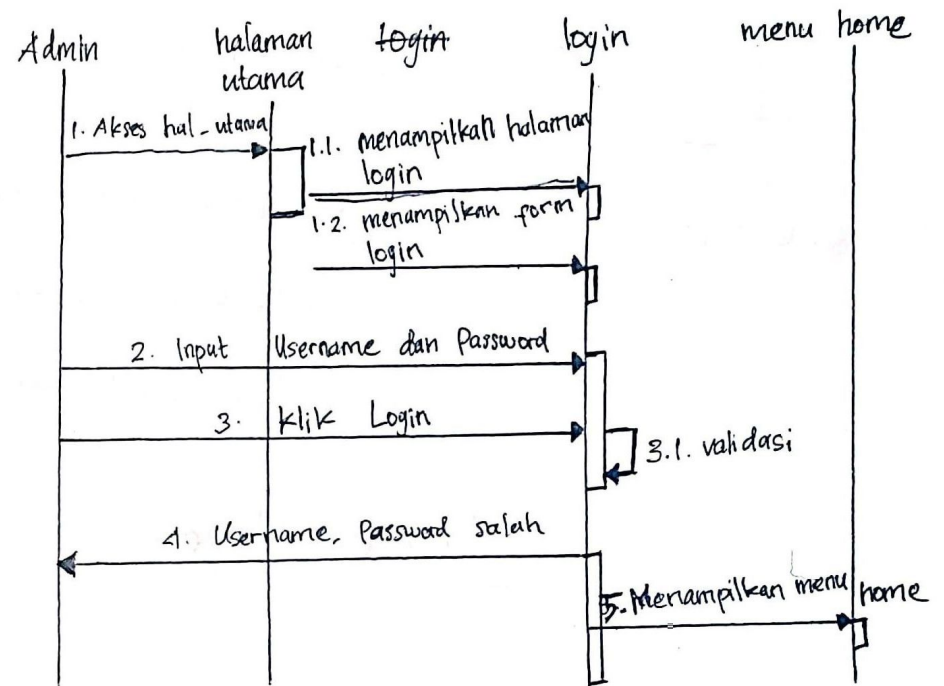 Admin
halaman
utama
login
login
menu home
1. Akses hal_utama
1.1. menampilkan halaman
login
1.2. menampilkan form
login
2. Input Username dan Password
3. Klik Login
3.1. validasi
4. Username, Password salah
5. Menampilkan menu home